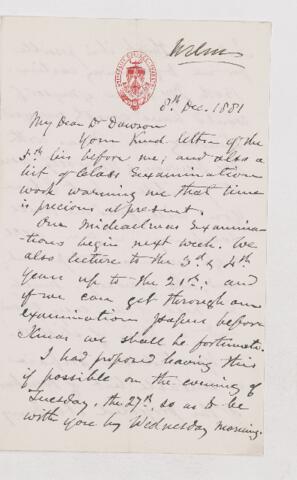 8th Dec. 1881
My Dear Dr Dawson
Your kind letter of the
5th lies before me; and also a
list of Class Examination
work warning me that time
is precious at present.
Our Michaelmas Examina-
tions begin next week. We
also lecture to the 3d & 4th
years up to the 21st; and
if we can get through our
examination papers before
Xmas we shall be fortunate.
I had proposed leaving this
if possible on the evening of
Tuesday, the 27th, so as to be
with you by Wednesday morning.